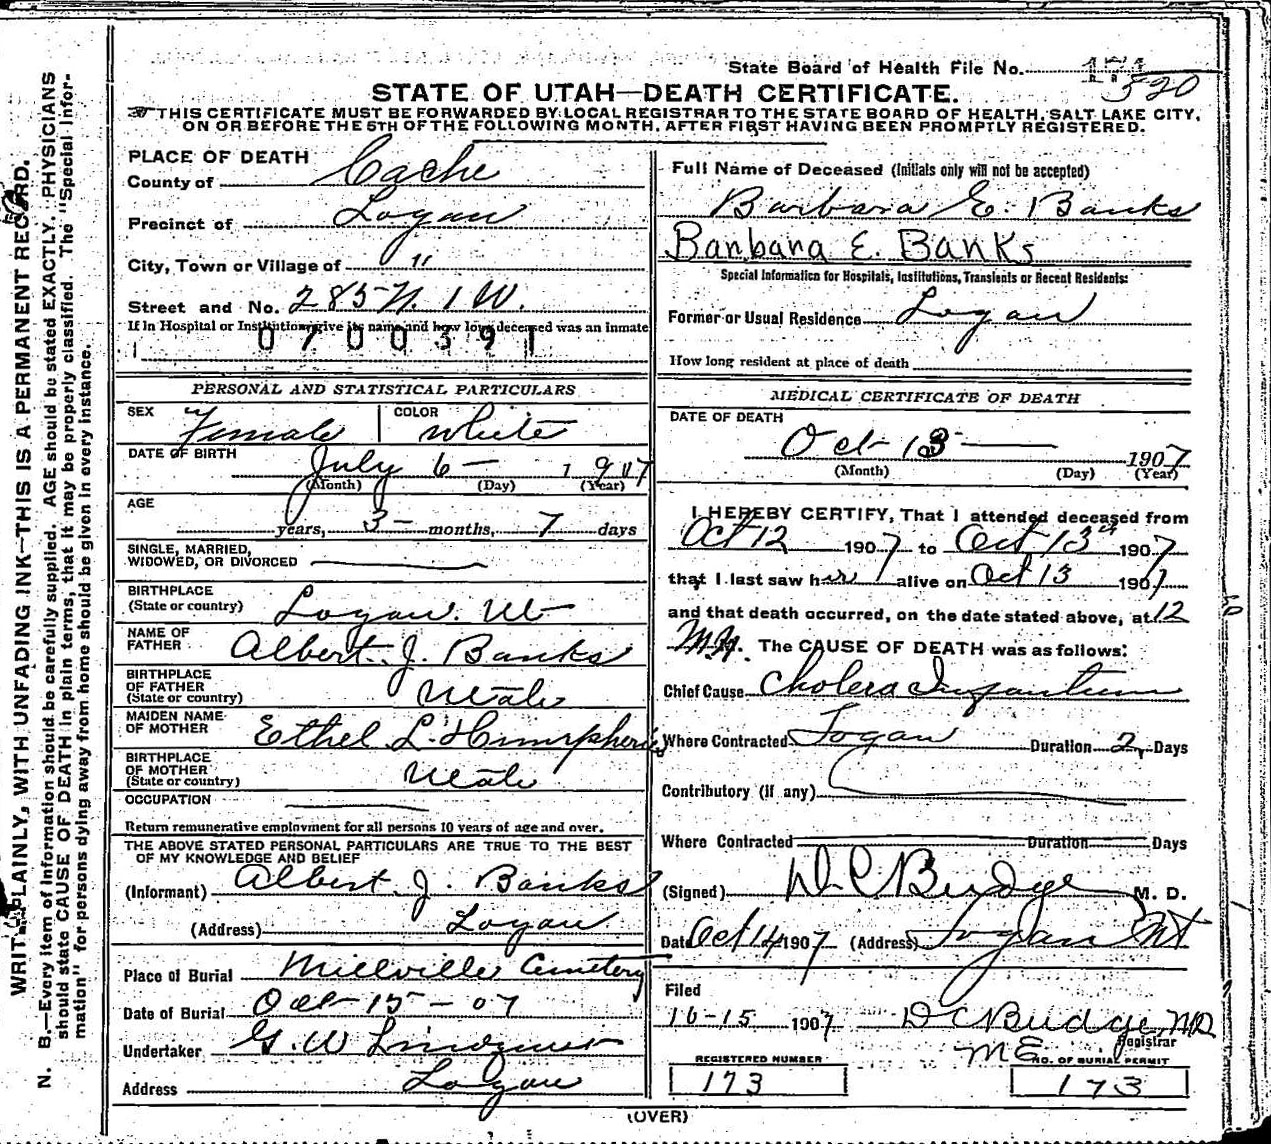 State Board of Health File No. 171 320
STATE OF UTAH—DEATH CERTIFICATE.
THIS CERTIFICATE MUST BE FORWARDED BY LOCAL REGISTRAR TO THE STATE BOARD OF HEALTH, SALT LAKE CITY,
ON OR BEFORE THE 5TH OF THE FOLLOWING MONTH, AFTER FIRST HAVING BEEN PROMPTLY REGISTERED.
WRITE PLAINLY, WITH UNFADING INK—THIS IS A PERMANENT RECORD.
N. B.—Every item of information should be carefully supplied. AGE should be stated EXACTLY. PHYSICIANS
should state CAUSE OF DEATH in plain terms, that it may be properly classified. The "Special Infor-
mation" for persons dying away from home should be given in every instance.
PLACE OF DEATH
County of Cache
Precinct of Logan
City, Town or Village of "
Street and No. 285 N. 1 W.
If in Hospital or Institution, give its name and how long deceased was an Inmate
0700391
PERSONAL AND STATISTICAL PARTICULARS
SEX Female COLOR White
DATE OF BIRTH July 6 — 1907
(Month) (Day) (Year)
AGE
years, 3 — months, 7 days
SINGLE, MARRIED,
WIDOWED, OR DIVORCED
BIRTHPLACE
(State or country) Logan. Ut
NAME OF
FATHER Albert J. Banks
BIRTHPLACE
OF FATHER
(State or country) Utah
MAIDEN NAME
OF MOTHER Ethel L. Humpheries
BIRTHPLACE
OF MOTHER
(State or country) Utah
OCCUPATION
Return remunerative employment for all persons 10 years of age and over.
THE ABOVE STATED PERSONAL PARTICULARS ARE TRUE TO THE BEST
OF MY KNOWLEDGE AND BELIEF
(Informant) Albert J. Banks
(Address) Logan
Place of Burial Millville Cemetery
Date of Burial Oct-15-07
Undertaker G. W. Lindquist
Address Logan
Full Name of Deceased (Initials only will not be accepted)
Barbara E. Banks
Barbara E. Banks
Special Information for Hospitals, Institutions, Transients or Recent Residents:
Former or Usual Residence Logan
How long resident at place of death
MEDICAL CERTIFICATE OF DEATH
DATE OF DEATH
Oct- 13 1907
(Month) (Day) (Year)
I HEREBY CERTIFY, That I attended deceased from
Oct 12 1907 to Oct 13th 1907
that I last saw her alive on Oct 13 1907
and that death occurred, on the date stated above, at 12
M. The CAUSE OF DEATH was as follows:
Chief Cause Cholera Infantum
Where Contracted Logan Duration 2 Days
Contributory (if any)
Where Contracted Duration Days
(Signed) D C Budge M. D.
Date Oct 14 1907 (Address) Logan Ut
Filed
10-15 1907 D C Budge, MD
Registrar
ME
REGISTERED NUMBER NO. OF BURIAL PERMIT
173 173
(OVER)